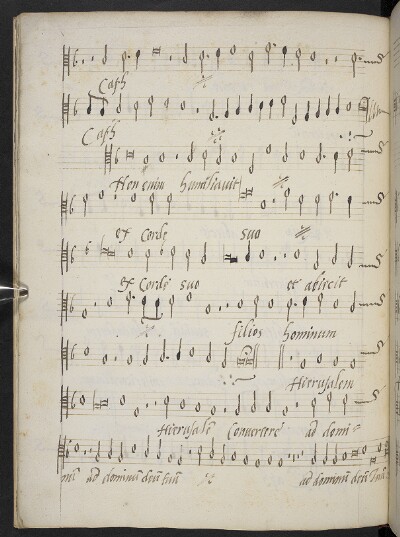 Caph
Caph
Non enim humiliauit
ex Corde suo
ex Corde suo et abiecit
filios hominum
Hierusalem
Hierusalē Conuertere ad domi=
nū ad dominū deū tuū ad dominū deū tuū